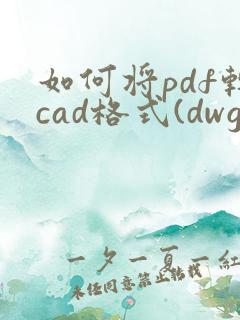 如何将pdf转
cad格式(dwg
一夕一夏一红
未经同意禁止转载